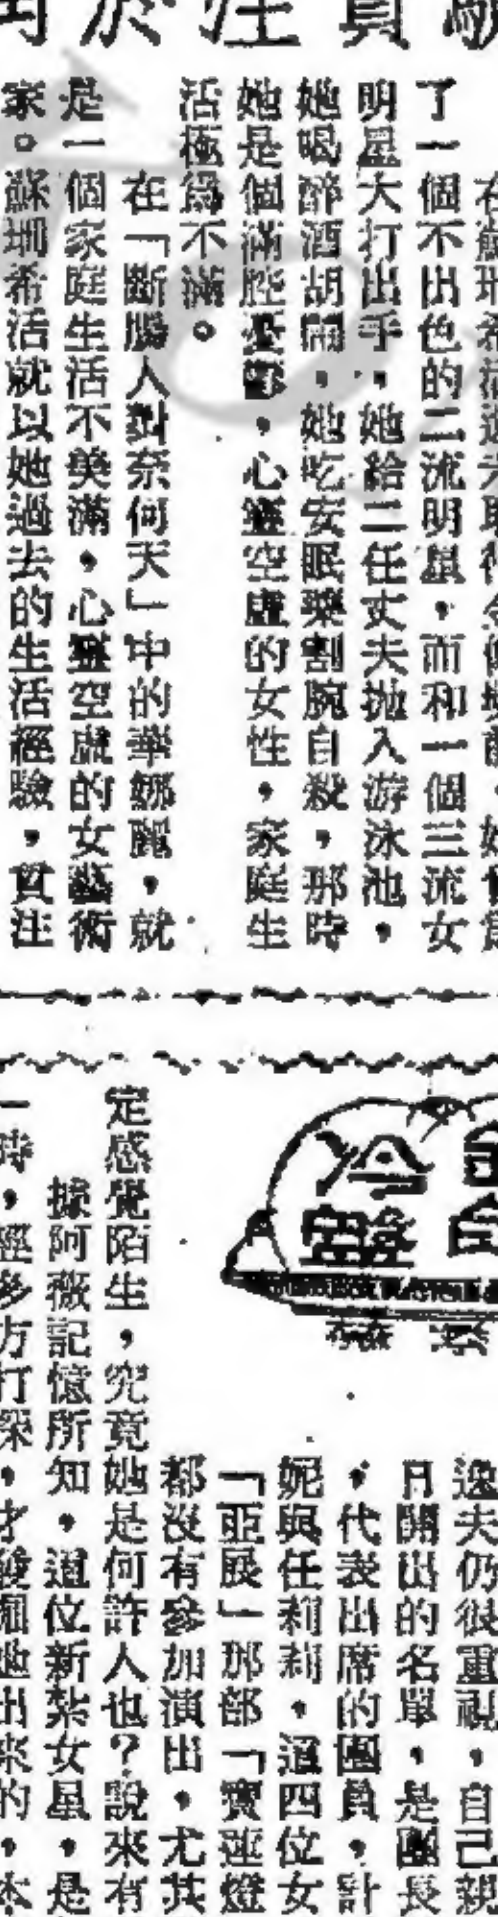 於注貫
了一個不出色的二流明星，而和一個三流女
明星大打出手，她給二任丈夫拋入游泳池，
她喝醉酒胡鬧，她吃安眠藥割腕自殺，那時
她是個滿腔憂鬱，心靈空虛的女性，家庭生
活極為不滿。
在「斷腸人對奈何天」中的華娜麗，就
是一個家庭生活不美滿，心靈空虛的女藝術
家。蘇珊希活就以她過去的生活經驗，貫注
逸夫仍很重視，自己親
月開出的名單，是團長
，代表出席的團員，計
妮與任莉莉，這四位女
「亞展」那部「寶蓮燈
都沒有參加演出，尤其
定感覺陌生，究竟她是何許人也？說來有
據阿薇記憶所知，這位新紮女星，是
一時，經多方打探，才發掘她出來的，本